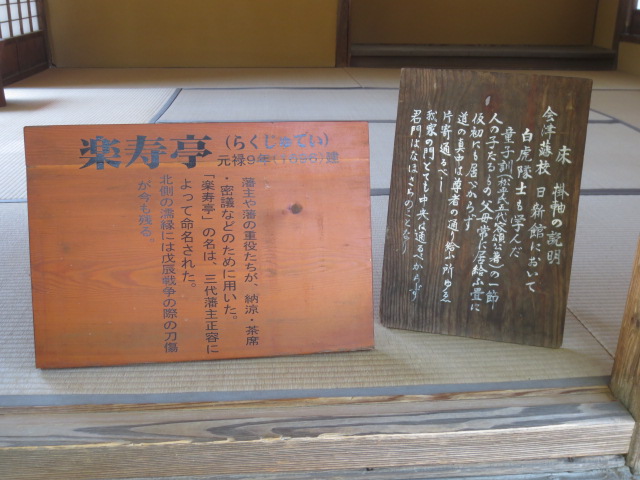 楽寿亭
(らくじゅてい)
元禄9年(1696)建
藩主や藩の重役たちが、納涼・茶席
・密議などのために用いた。
「楽寿亭」の名は、三代藩主正容に
よって命名された。
北側の濡縁には戊辰戦争の際の刀傷
が今も残る。
床掛軸の説明
会津藩校日新館において
白虎隊士も学んだ
童子訓(松平五代容頌公著)の一節
人の子たるもの父母常に居給ふ畳に
仮初にも居べからず
道の真中は尊者の通り給ふ所ゆえ
片寄通るべし
我家の門とても中央は通べからず
君門はなほさらのことなり